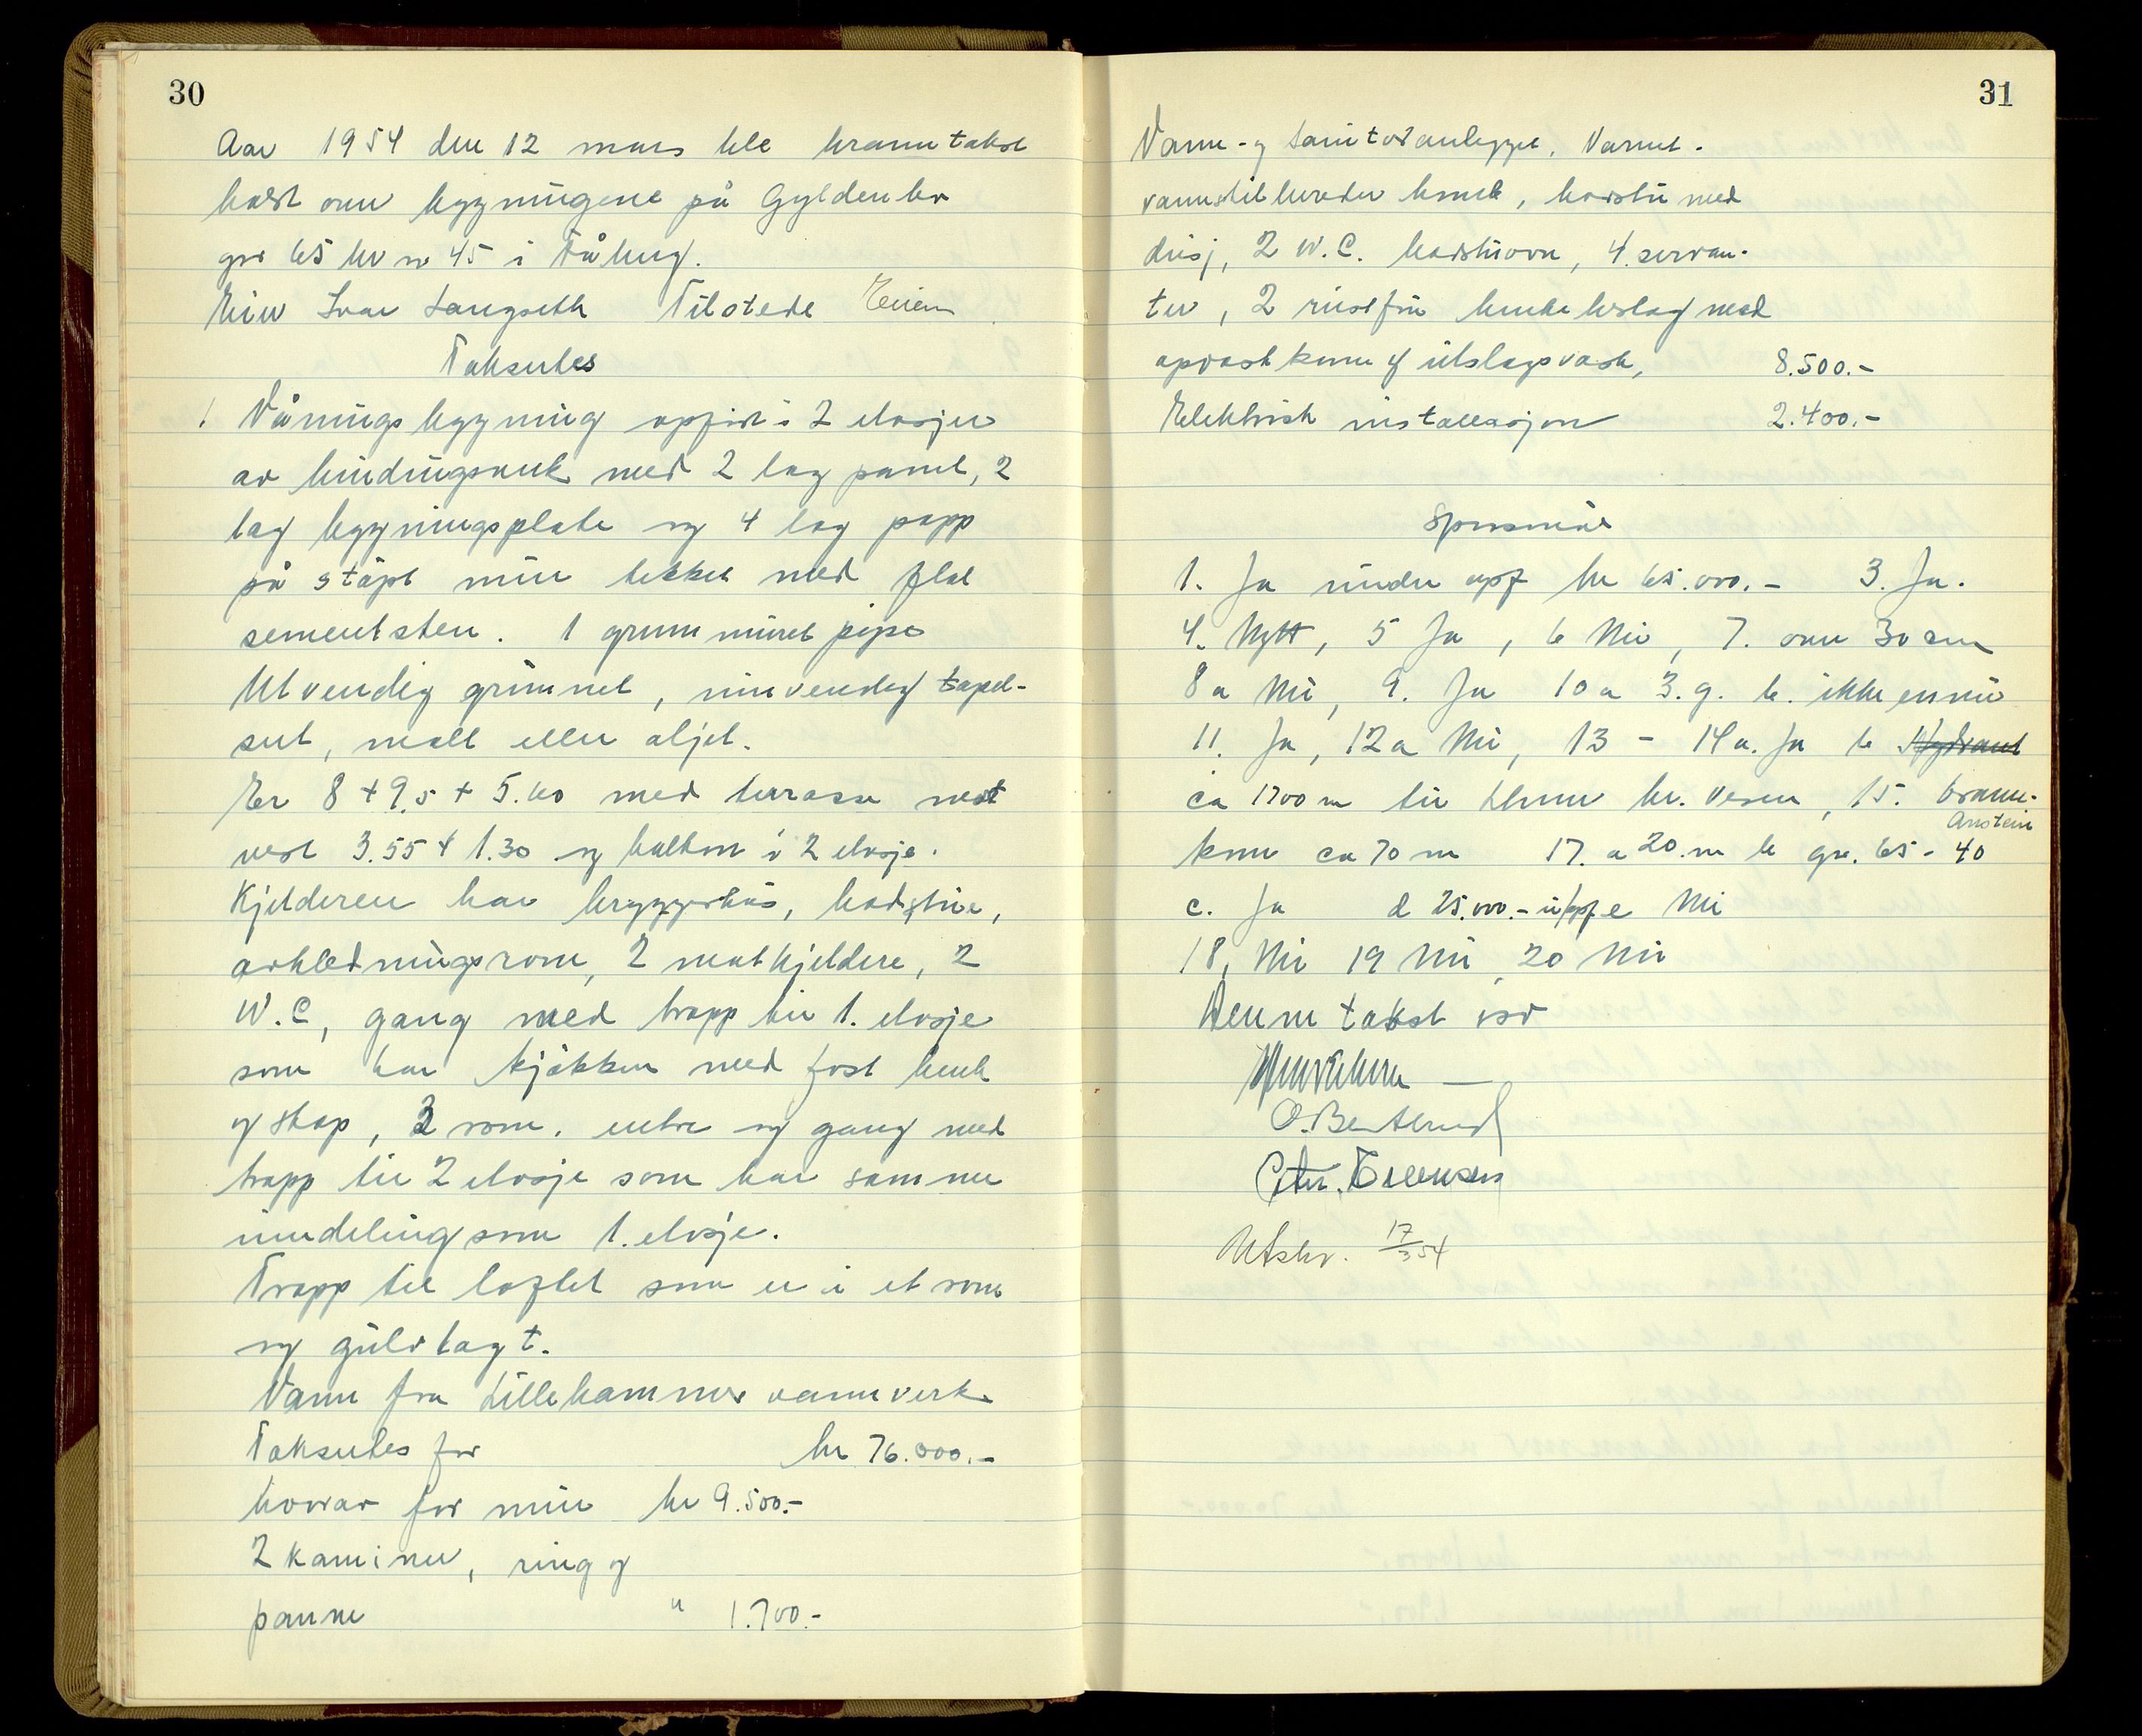 30
Aar 1954 den 12 mars ble branntakst
holdt over bygningene på Gyldenbo
gnr 65 br nr 45 i Fåberg.
Eier Ivar Langseth Tilstede Eieren
Taksertes
1 Våningsbygning oppført i 2 etasjer
av bindingsverk med 2 lag panel, 2
lag bygningsplate og 4 lag papp
på støpt mur tekket med flat
sementsten. 1 grunnmuret pipe
Utvendig grunnet, innvendig tapet-
sert, malt eller oljet.
Er 8 + 9,5 + 5.60 med terrasse mot
vest 3.55 + 1.30 og balkon i 2 etasje.
Kjelderen har bryggerhus, badstue,
avkledningsrom, 2 matkjeldere, 2
W.C, gang med trapp til 1. etasje
som har kjøkken med fast benk
og skap, 3 rom, entre og gang med
trapp til 2 etasje som har samme
inndeling som 1. etasje.
Trapp til loftet som er i et rom
og gulvlagt.
Vann fra Lillehammer vannverk
Taksertes for kr 76.000.-
hvorav for mur kr 9.500.-
2 kaminer, ring og
panne " 1.700.-
31
Vann- og sanitæranlegget, Varmt-
vannstilbereder komb, badstu med
dusj, 2 W.C. badstuovn, 4 servan-
ter, 2 rustfri benkebeslag med
oppvaskkum og utslagsvask, 8.500.-
Elektrisk installasjon 2.400.-
Spørsmål
1. Ja under oppf kr 65.000.- 3. Ja.
4. Nytt, 5 Ja, 6 Nei, 7. over 30 cm
8a Nei, 9. Ja 10a 3.g. b. ikke ennu
11. Ja, 12a Nei, 13 - 14a. Ja b Hydrant
ca 1700 m til Lhmr br. vesen, 15. brann-
Anstein
kum ca 70 m 17. a 20. m b gnr. 65 - 40
c. Ja d 25.000.- u/oppf e Nei
18, Nei 19 Nei, 20 Nei
Denne takst var
O. Bentsrud
Utskr. 17/3 54